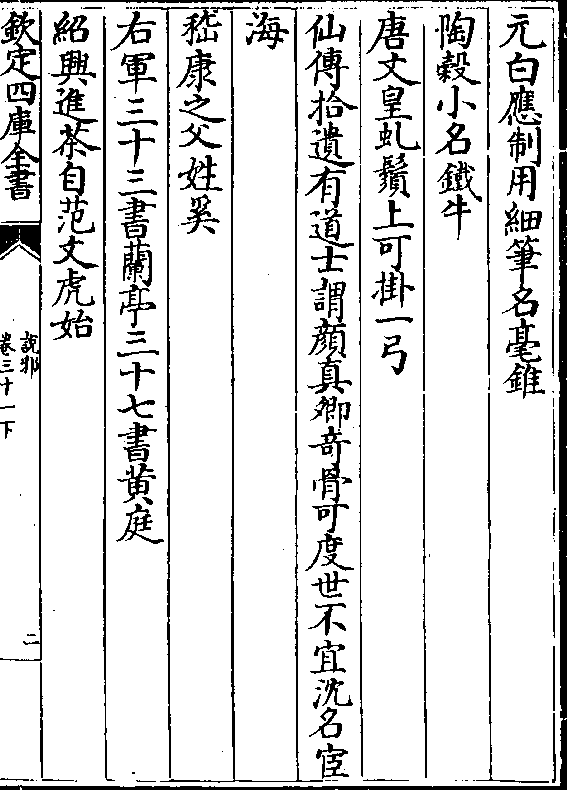 元白應制用細筆名毫錐
陶穀小名鐵牛
唐文皇虬鬚上可掛一弓
仙傳拾遺有道士謂顔真卿竒骨可度世不宜沈名宦
海
嵇康之父姓奚
右軍三十三書蘭亭三十七書黄庭
紹興進茶自范文虎始
欽定四庫全書
說郛
卷三十一下
二